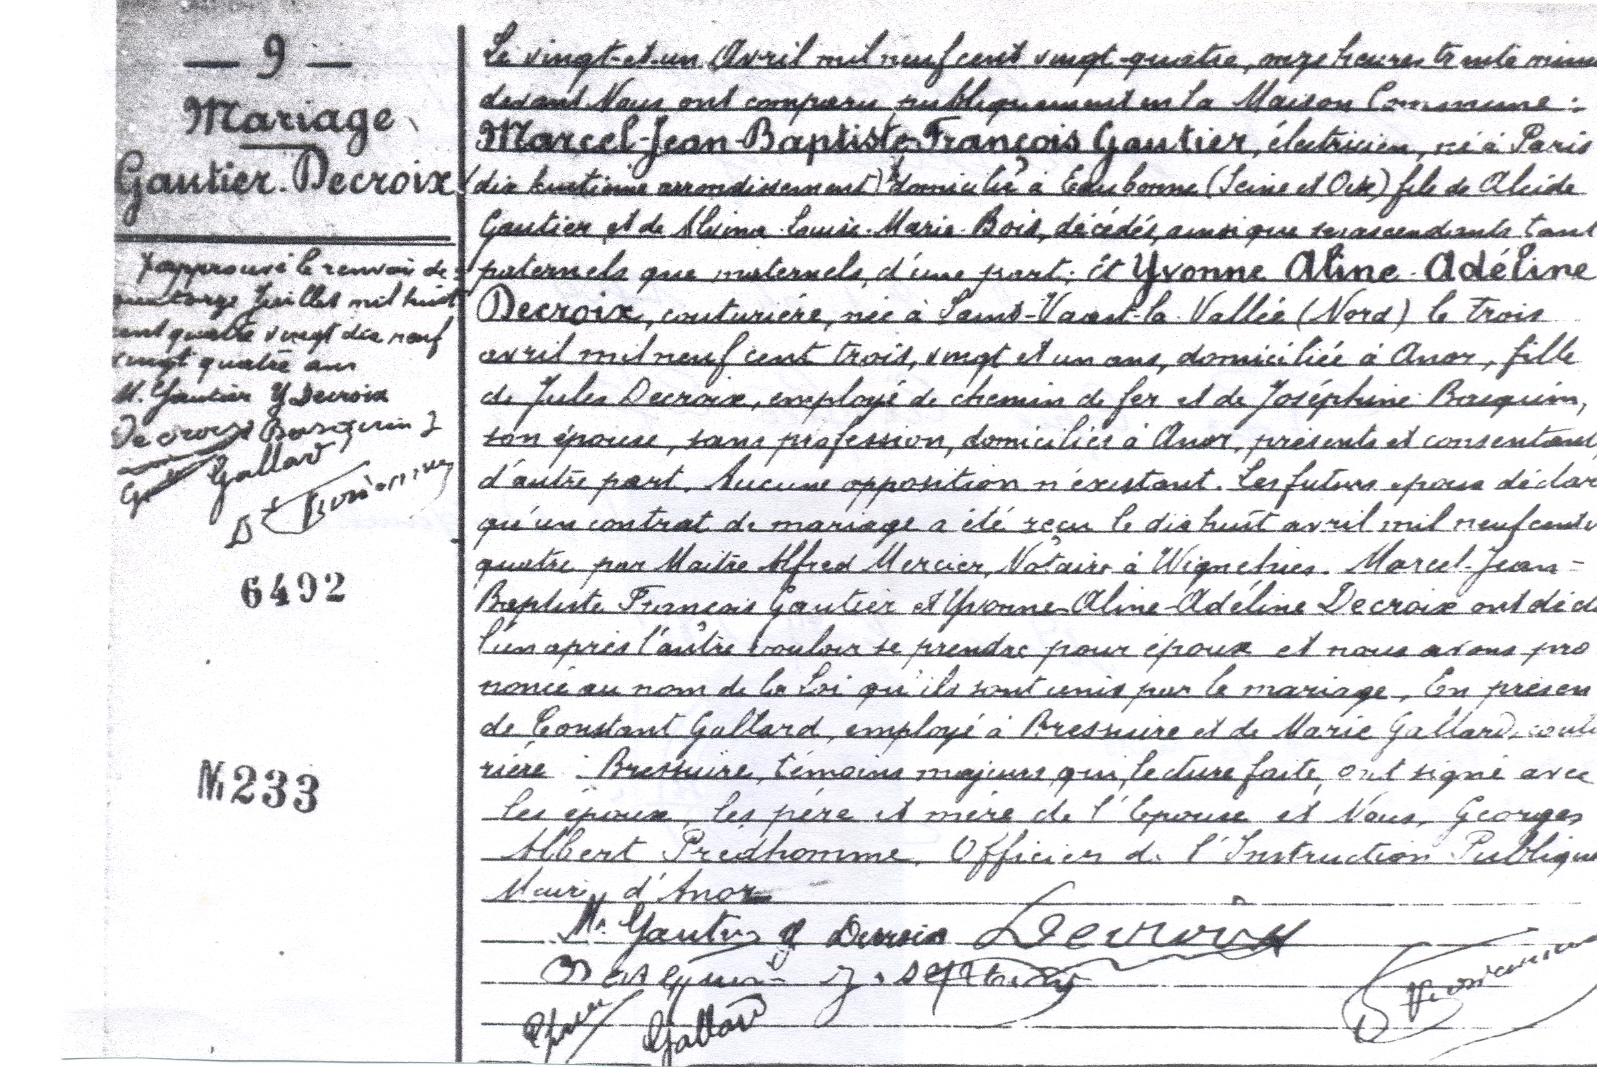 — 9 —
Mariage
Gautier-Decroix
X approuvé le renvoi de :
quatorze Juillet mil huit
cent quatre vingt dix neuf
vingt quatre ans
M. Gautier Y Decroix
Decroix Basquin J
Gallard
6492
N 233
Le vingt-et-un Avril mil neuf cent vingt-quatre, onze heures trente minu
devant Nous ont comparu publiquement en la Maison Commune :
Marcel-Jean-Baptiste-François Gautier, électricien, né à Paris
(dix huitième arrondissement) X domicilié à Eaubonne (Seine et Oise) fils de Alcide
Gautier et de Alvina Louise-Marie Bois, décédés, ainsi que ses ascendants tant
paternels que maternels, d'une part ; Et Yvonne Aline-Adéline
Decroix, couturière, née à Saint-Vaast-la-Vallée (Nord) le trois
avril mil neuf cent trois, vingt et un ans, domiciliée à Anor, fille
de Jules Decroix, employé de chemin de fer et de Joséphine Basquin,
son épouse, sans profession, domiciliés à Anor, présents et consentant
d'autre part. Aucune opposition n'existant. Les futurs epoux déclar
qu'un contrat de mariage a été reçu le dix huit avril mil neuf cent v
quatre par Maître Alfred Mercier, Notaire à Wignehies. Marcel-Jean-
Baptiste François Gautier et Yvonne-Aline-Adéline Decroix ont décl
l'un après l'autre vouloir se prendre pour époux et nous avons pro
noncé au nom de la Loi qu'ils sont unis par le mariage. En présen
de Constant Gallard, employé à Bressuire et de Marie Gallard, coutu
rière Bressuire, témoins majeurs qui, lecture faite, ont signé avec
les époux, les père et mère de l'Epouse et Nous, Georges
Albert Prédhomme, Officier de l'Instruction Publique
Maire d'Anor
M. Gautier Y Decroix Decroix
Basquin J.
Gallard